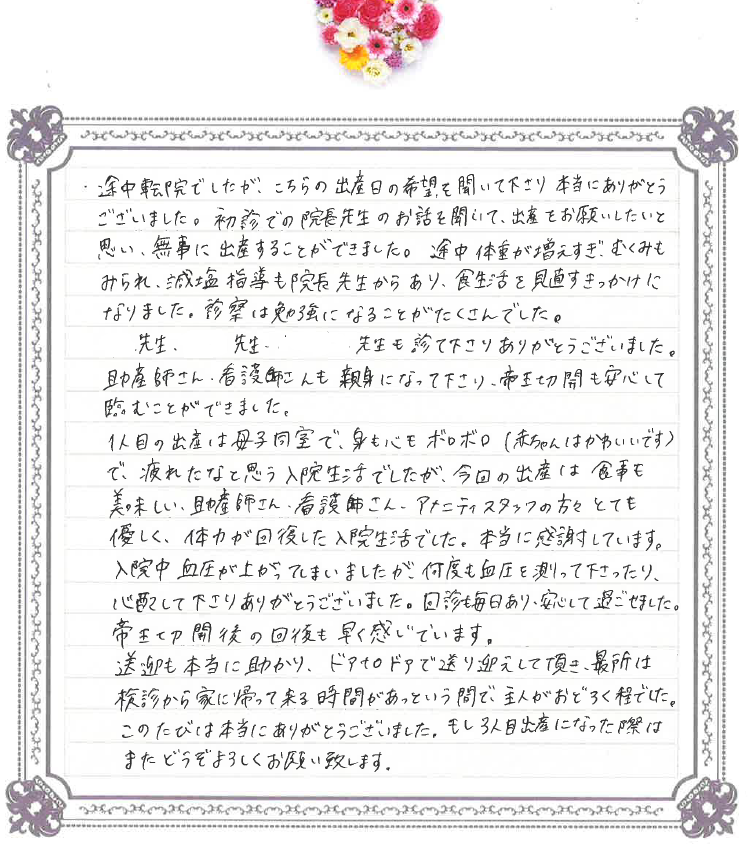 ・途中転院でしたが、こちらの出産日の希望を聞いて下さり本当にありがとう
ございました。初診での院長先生のお話を聞いて、出産をお願いしたいと
思い、無事に出産することができました。途中体重が増えすぎ、むくみも
みられ、減塩指導も院長先生からあり、食生活を見直すきっかけに
なりました。診察は勉強になることがたくさんでした。
先生、先生、先生も診て下さりありがとうございました。
助産師さん、看護師さんも親身になって下さり、帝王切開も安心して
臨むことができました。
1人目の出産は母子同室で、身も心もボロボロ(赤ちゃんはかわいいです)
で、疲れたなと思う入院生活でしたが、今回の出産は食事も
美味しい、助産師さん、看護師さん、アメニティスタッフの方々とても
優しく、体力が回復した入院生活でした。本当に感謝しています。
入院中血圧が上がってしまいましたが、何度も血圧を測って下さったり、
心配して下さりありがとうございました。回診も毎日あり、安心して過ごせました。
帝王切開後の回復も早く感じています。
送迎も本当に助かり、ドアtoドアで送り迎えして頂き、最所は
検診から家に帰って来る時間があっという間で、主人がおどろく程でした。
このたびは本当にありがとうございました。もし3人目出産になった際は
またどうぞよろしくお願い致します。